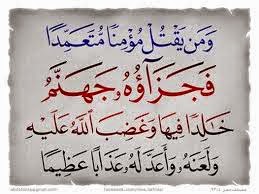 وَمَن يَقْتُلْ مُؤْمِنًا مُّتَعَمِّدًا
فَجَزَآؤُهُ جَهَنَّمُ
خَٰلِدًا فِيهَا وَغَضِبَ اللَّهُ عَلَيْهِ
وَلَعَنَهُ وَأَعَدَّ لَهُ عَذَابًا عَظِيمًا